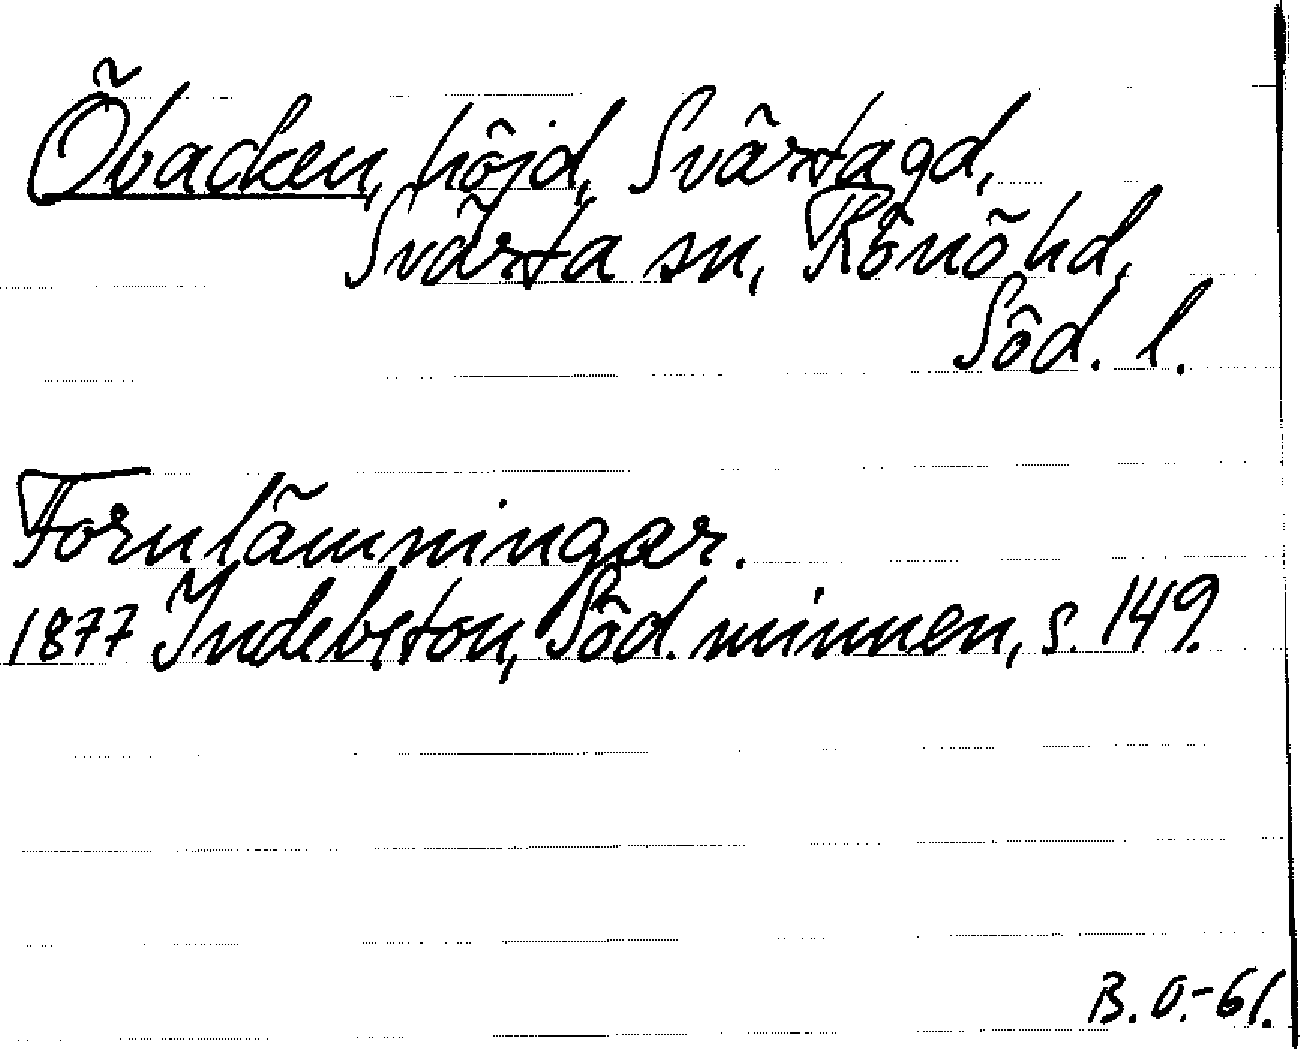 Öbacken, höjd, Svärta gd,
Svärta sn, Rönö hd,
Söd. l.
Fornlämningar.
1877 Indebetou, Söd. minnen, s. 149.
B.O.-61.